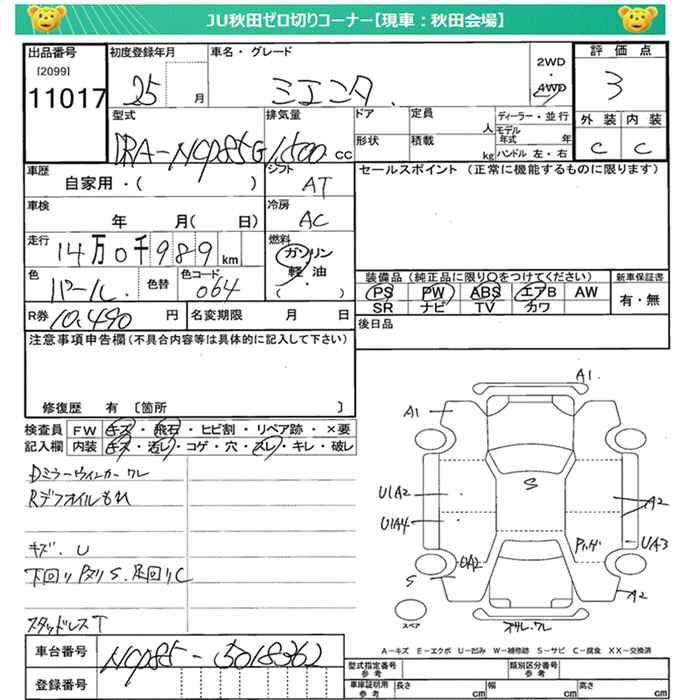 JU秋田ゼロ切りコーナー【現車：秋田会場】
出品番号 初度登録年月 車名・グレード 2WD・4WD 評価点
[2099]
11017 25 月 シエンタ 3
型式 排気量 ドア 定員 人 ディーラー・並行 外装 内装
モデル年式 年
DBA-NCP85G 1,500 cc 形状 積載 kg ハンドル 左・右 C C
車歴 シフト セールスポイント (正常に機能するものに限ります)
自家用・( ) AT
車検 冷房
年 月( 日) AC
走行 燃料
14万0千989km ガソリン
色 色替 色コード 軽・油
パール 064 ( )
装備品 (純正品に限り○をつけてください) 新車保証書
PS PW ABS エアB AW 有・無
SR ナビ TV カワ
R券 10,490 円 名変期限 月 日
後日品
注意事項申告欄(不具合内容等は具体的に記入して下さい)
修復歴 有 [箇所 ]
検査員 FW キズ・飛石・ヒビ割・リペア跡・×要
記入欄 内装 キズ・汚レ・コゲ・穴・スレ・キレ・破レ
Dミラーウインカーワレ
Rデフオイルもれ
キズ.U
下回りサビS.足回りC
スタッドレスT
A1.
A1
S
U1A2
A2
U1A4
UA3
UA2
S
A2
スペア
A-キズ E-エクボ U-凹み W-補修跡 S-サビ C-腐食 XX-交換済
車台番号 NCP85-5018362
登録番号
型式指定番号 参考 類別区分番号 参考
車庫証明用 参考 長さ cm 幅 cm 高さ cm